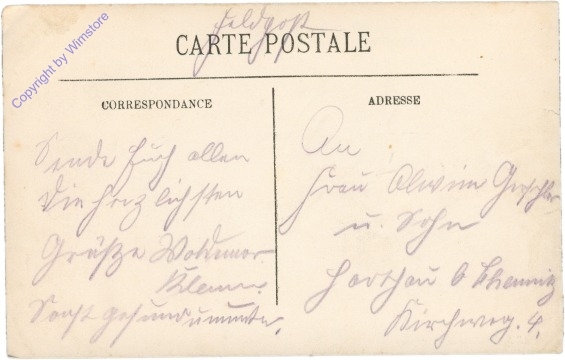 Feldpost
CARTE POSTALE
CORRESPONDANCE
ADRESSE
Sende Euch allen
die herzlichsten
Grüße Woldemar
Klemm.
Sonst gesund u. munter.
An
Frau Olwine
u. Sohn
Harthau b Chemnitz
Kirchweg. 4.
Copyright by Wimstore